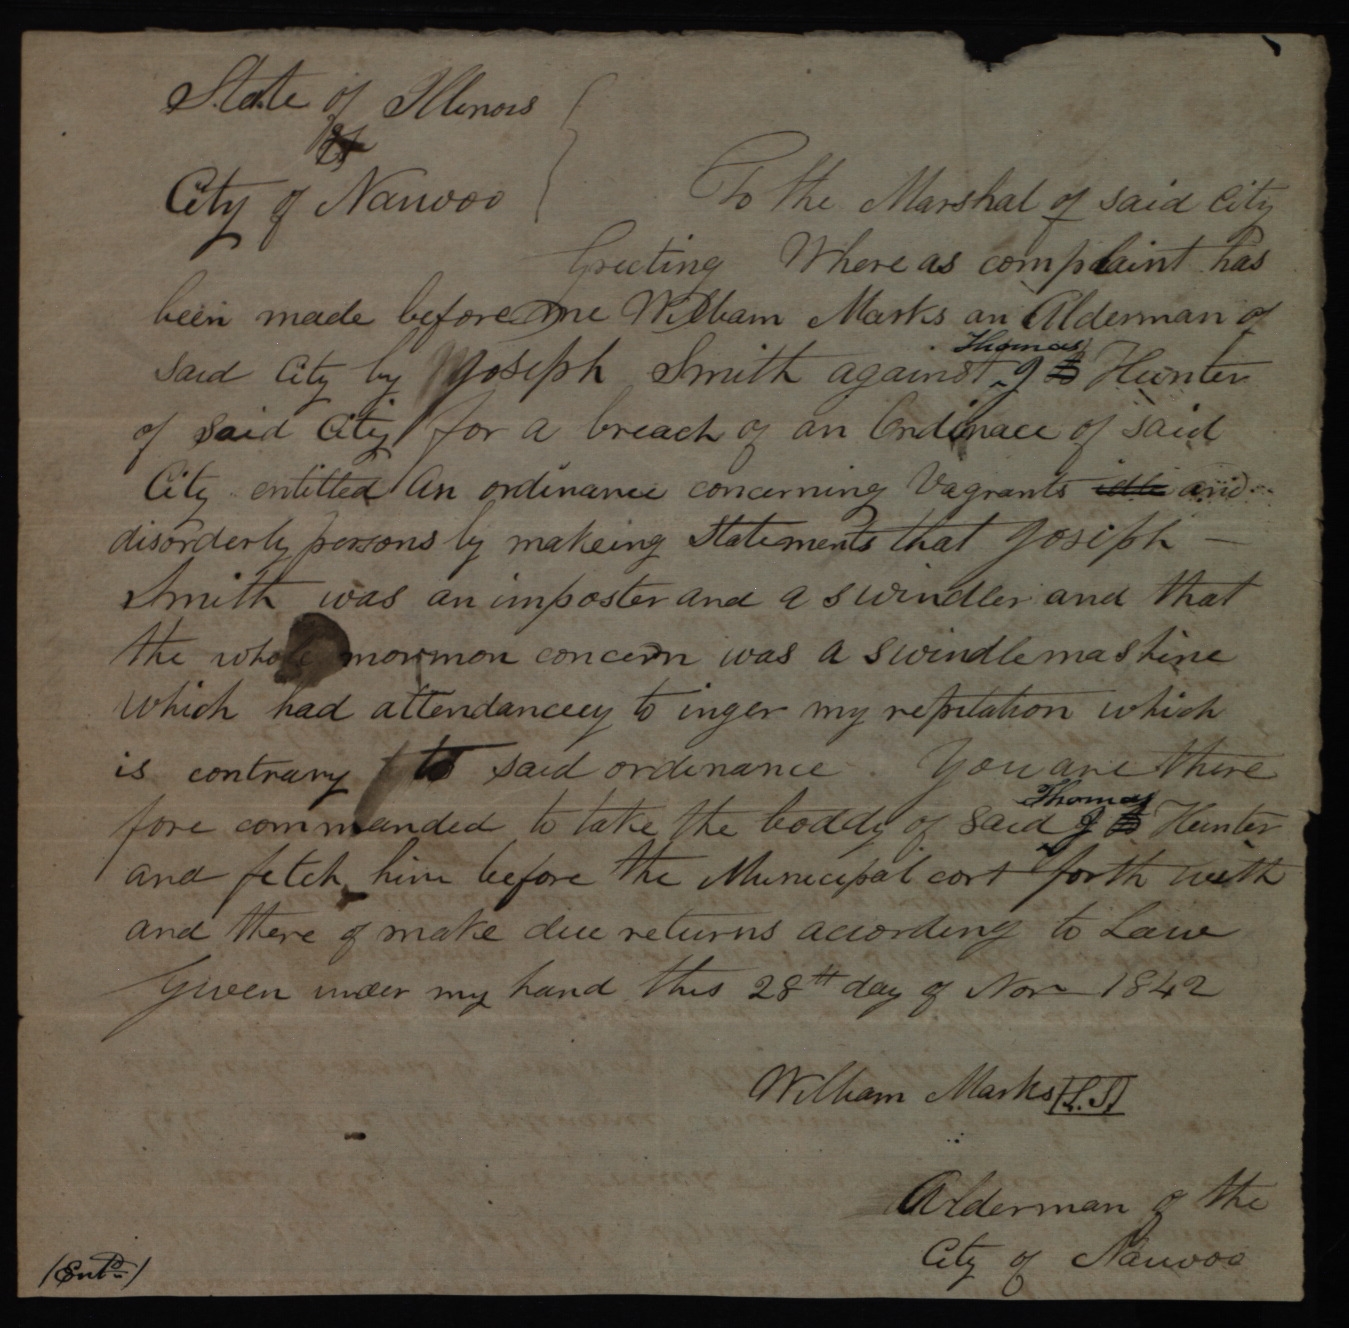 State of Illinois
City of Nauvoo
To the Marshal of said City
Greeting Where as complaint has
been made before me William Marks an Alderman of
Thomas
said City by Joseph Smith against J B Hunter
of said City for a breach of an Ordinace of said
City entitled An ordinance concerning Vagrants idle and
disorderly persons by makeing Statements that Joseph -
Smith was an imposter and a swindler and that
the whole mormon concern was a swindle mashine
which had attendancecy to inger my reputation which
is contrary to said ordinance. You are there
Thomas
fore commanded to take the boddy of said J B Hunter
and fetch him before the Municipal cort forth with
and there of make due returns according to Law
Given under my hand this 28th day of Nov 1842
William Marks [L.S]
Alderman of the
City of Nauvoo
(Entd)